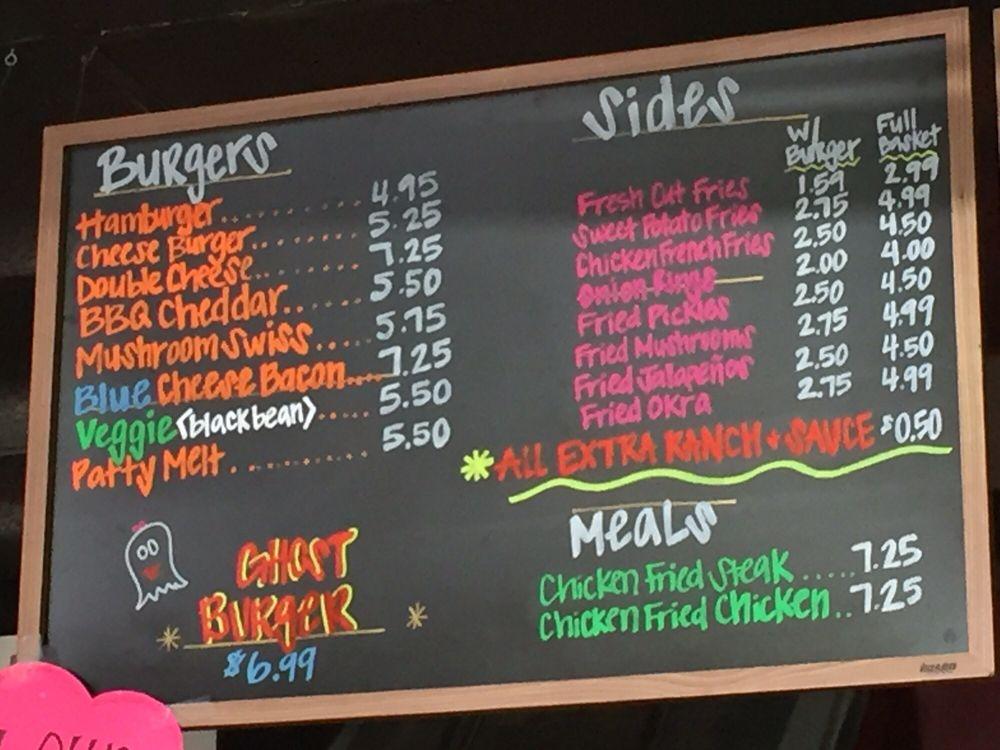 Burgers
Hamburger........ 4.95
Cheese Burger......... 5.25
Double Cheese......... 7.25
BBQ Cheddar....... 5.50
Mushroom Swiss..... 5.75
Blue Cheese Bacon.... 7.25
Veggie (black bean)..... 5.50
Patty Melt........... 5.50
GHOST
BURGER
$6.99
Sides
w/ Burger Full Basket
Fresh Cut Fries 1.59 2.99
Sweet Potato Fries 2.75 4.99
Chicken French Fries 2.50 4.50
Onion Rings 2.00 4.00
Fried Pickles 2.50 4.50
Fried Mushrooms 2.75 4.99
Fried Jalapeños 2.50 4.50
Fried Okra 2.75 4.99
*ALL EXTRA RANCH + SAUCE $0.50
Meals
Chicken Fried Steak ..... 7.25
Chicken Fried Chicken.. 7.25